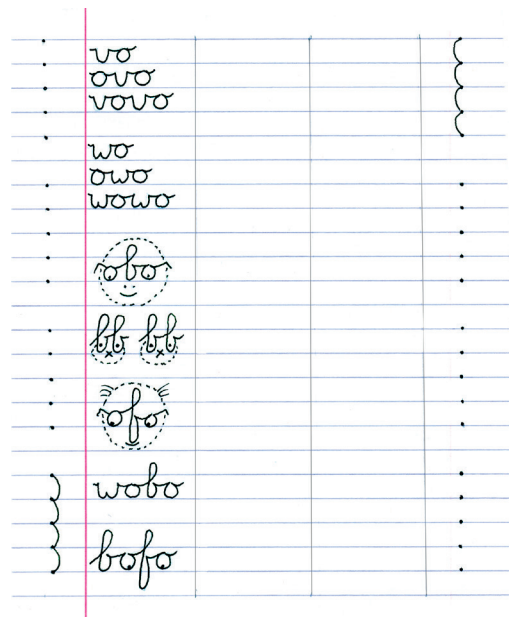 vo
ovo
vovo
wo
owo
wowo
obo
bb bb
ofo
wobo
bofo